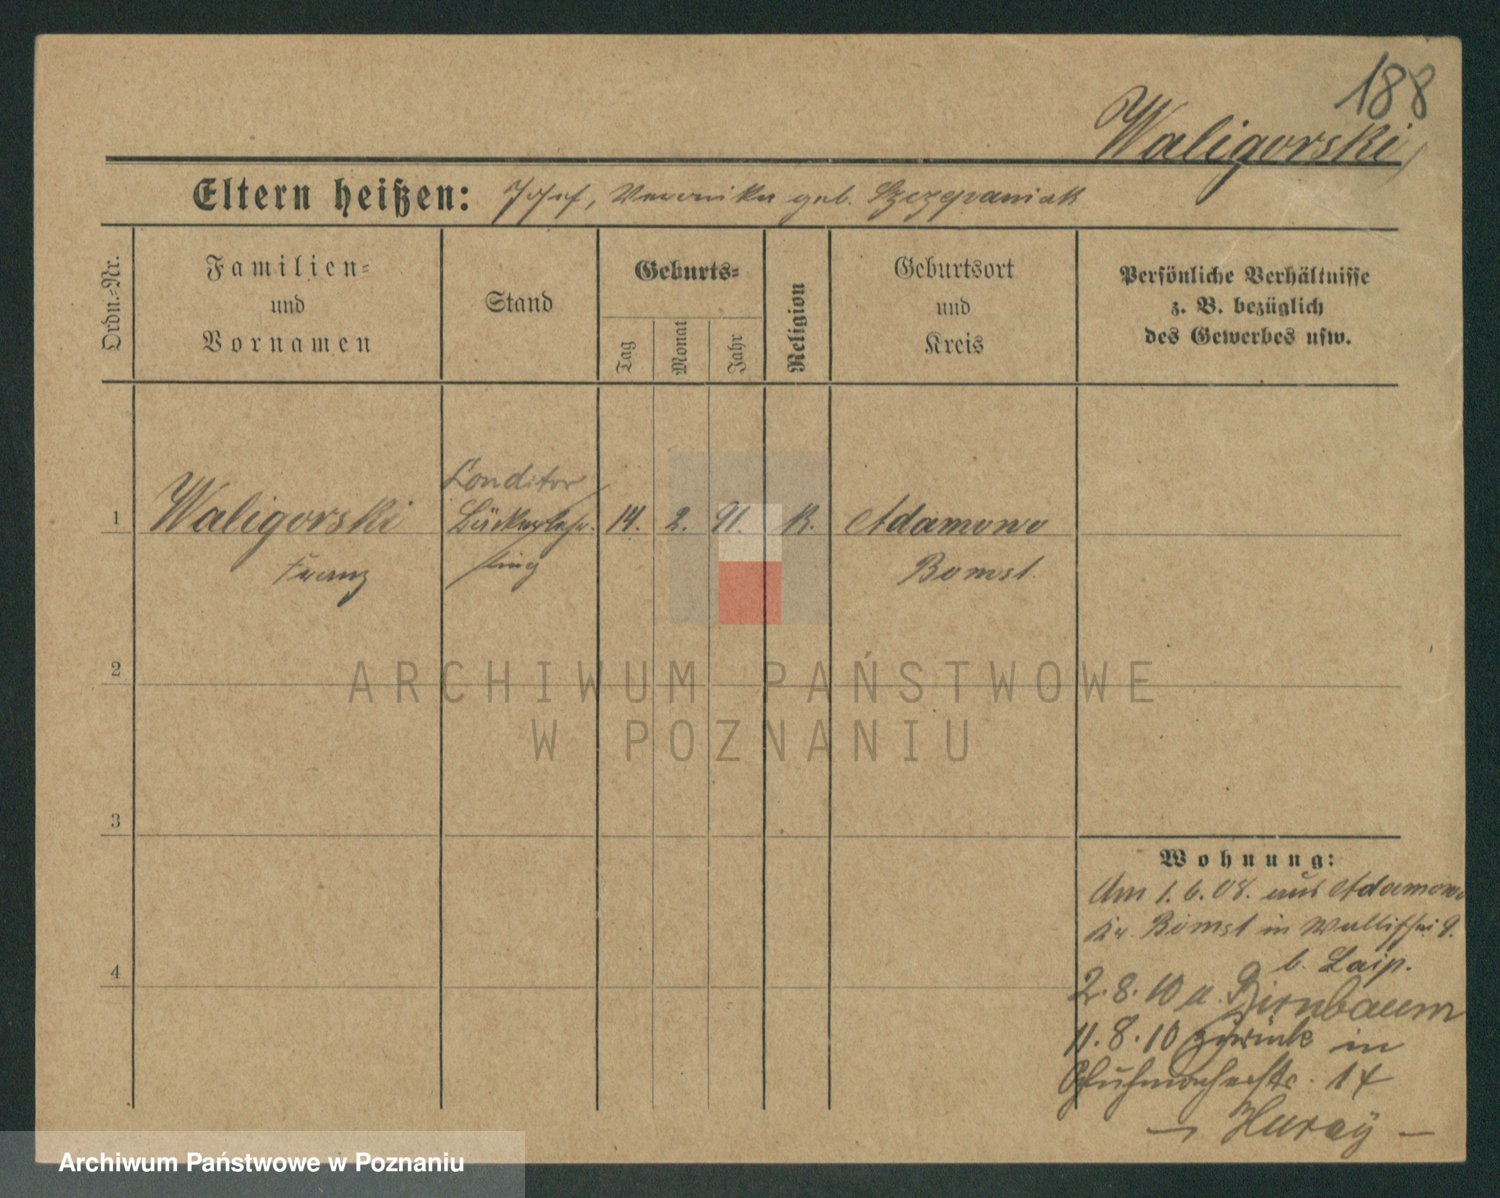 188
Waligorski
Eltern heißen: Josef, Veronika geb. Szczepaniak
Ordn.-Nr.
Familien-
und
Vornamen
Stand
Geburts-
Tag
Monat
Jahr
Religion
Geburtsort
und
Kreis
Persönliche Verhältnisse
z. B. bezüglich
des Gewerbes usw.
Conditor
1 Waligorski Bäckerlehr- 14. 2. 91. K. Adamowo
Franz ling Bomst.
2
3
4
Wohnung:
Am 1.6.08. aus Adamowo
Kr. Bomst in Wallischei 9.
b.
2.8.10 n. Birnbaum
11.8.10 zurück in
Schuhmacherstr. 14
ARCHIWUM PAŃSTWOWE
W POZNANIU
Archiwum Państwowe w Poznaniu